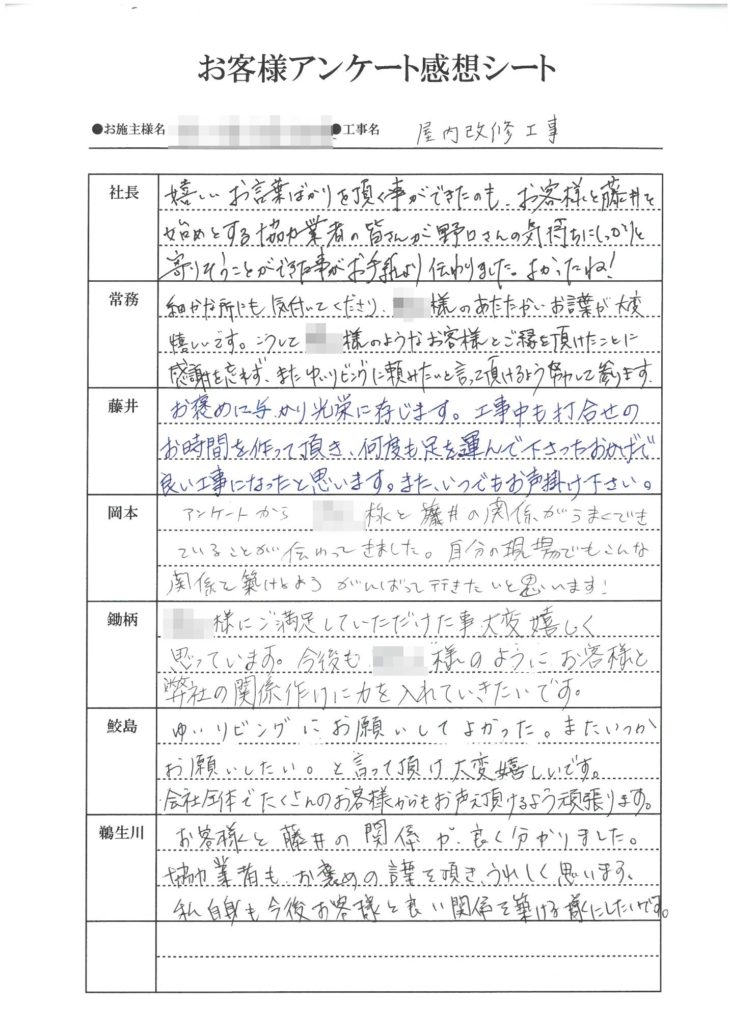 お客様アンケート感想シート
●お施主様名 ●工事名 屋内改修工事
社長 嬉しいお言葉ばかりを頂く事ができたのも、お客様と藤井を
始めとする協力業者の皆さんが野口さんの気持ちにしっかりと
寄りそうことができた事がお手紙より伝わりました。よかったね!
常務 細かな所にも気付いてくださり、様のあたたかいお言葉が大変
嬉しいです。こうして様のようなお客様とご縁を頂けたことに
感謝を忘れず、またゆいリビングに頼みたいと言って頂けるよう努力して参ります。
藤井 お褒めに与かり光栄に存じます。工事中も打合せの
お時間を作って頂き、何度も足を運んで下さったおかげで
良い工事になったと思います。また、いつでもお声掛け下さい。
岡本 アンケートから 様と藤井の関係がうまくでき
ていることが伝わってきました。自分の現場でもこんな
関係を築けるよう がんばって行きたいと思います!
鋤柄 様にご満足していただけた事大変嬉しく
思っています。今後も 様のようにお客様と
弊社の関係作りに力を入れていきたいです。
鮫島 ゆいリビングにお願いしてよかった。またいつか
お願いしたい。と言って頂け大変嬉しいです。
会社全体でたくさんのお客様からもお声頂けるよう頑張ります。
鵜生川 お客様と藤井の関係が良く分かりました。
協力業者もお褒めの言葉を頂き、うれしく思います。
私自身も今後お客様と良い関係を築ける様にしたいです。